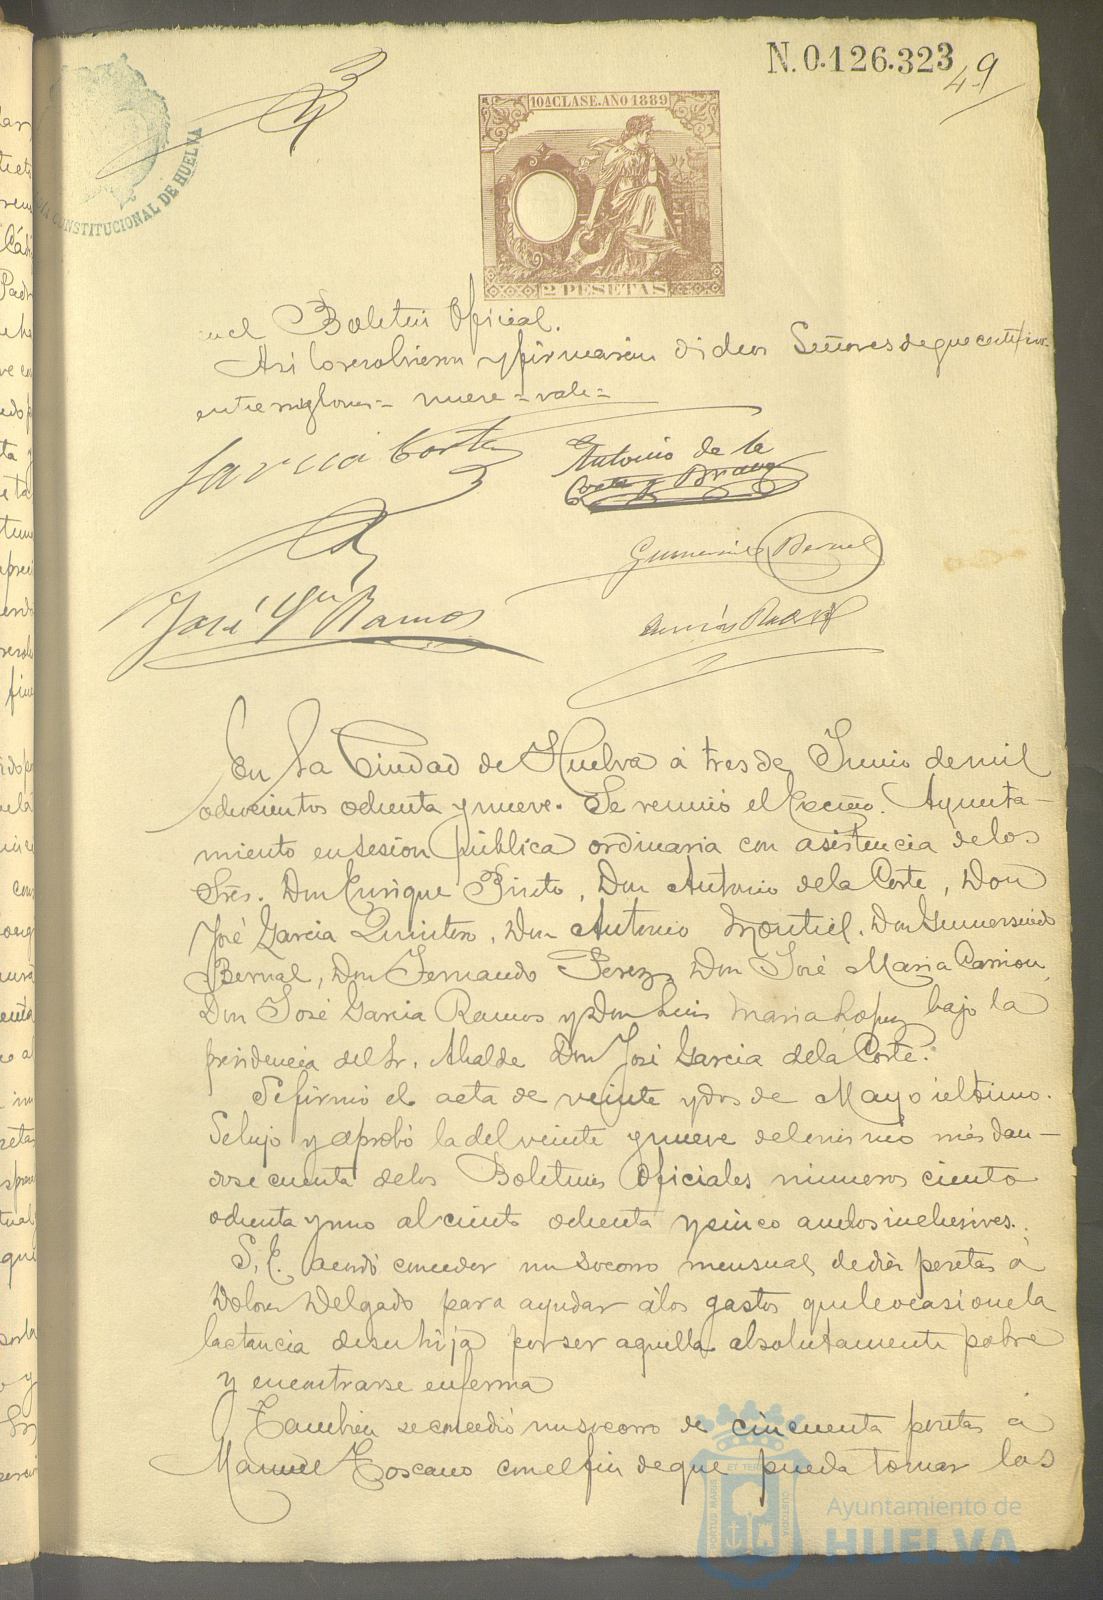 N. 0.126.323
49
10ª CLASE. AÑO 1889
2 PESETAS
CONSTITUCIONAL DE HUELVA
en el Boletin Oficial.
Asi lo resolvieron y firmaron dichos Señores de que certifico.
entre renglones = nueve = vale =
Garcia Corte
Antonio de la
Corte y Bravo
Gumersindo Bernal
José Gª Ramos
En la Ciudad de Huelva á tres de Junio de mil
ochocientos ochenta y nueve. Se reunió el Excmo. Ayunta-
miento en sesion pública ordinaria con asistencia de los
Sres. Don Enrique Prieto, Don Antonio de la Corte, Don
José Garcia Quintero, Don Antonio Montiel, Don Gumersindo
Bernal, Don Fernando Perez, Don José Maria Carrion,
Don José Garcia Ramos y Don Luis Maria Lopez bajo la
presidencia del Sr. Alcalde Don José Garcia de la Corte.
Se firmó el acta de veinte y dos de Mayo último.
Se leyó y aprobó la del veinte y nueve del mismo mes dan-
dose cuenta de los Boletines Oficiales números ciento
ochenta y uno al ciento ochenta y cinco ambos inclusives.
S. E. acordó conceder un socorro mensual de diez pesetas á
Dolores Delgado para ayudar á los gastos que le ocasione la
lactancia de su hija por ser aquella absolutamente pobre
y encontrarse enferma
Tambien se concedió un socorro de cincuenta pesetas á
Manuel Toscano con el fin de que pueda tomar los
Ayuntamiento de
HUELVA